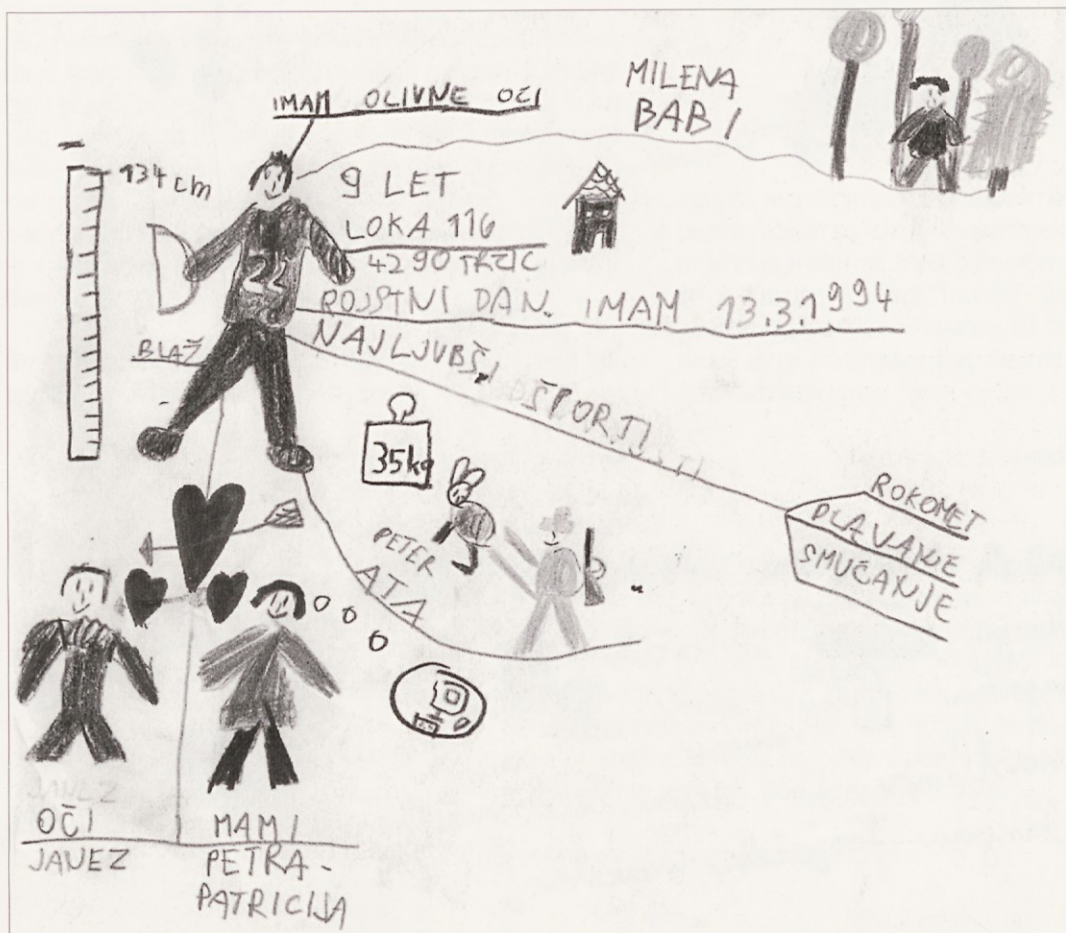 IMAM OLIVNE OČI
MILENA
BABI
134 cm
9 LET
LOKA 116
4290 TRZIC
22
ROJSTNI DAN. IMAM 13.3.1994
BLAŽ
NAJLJUBŠI ŠPORTI
35kg
ROKOMET
PLAVANJE
SMUČANJE
PETER
ATA
JANEZ
OČI
JANEZ
MAMI
PETRA-
PATRICIJA